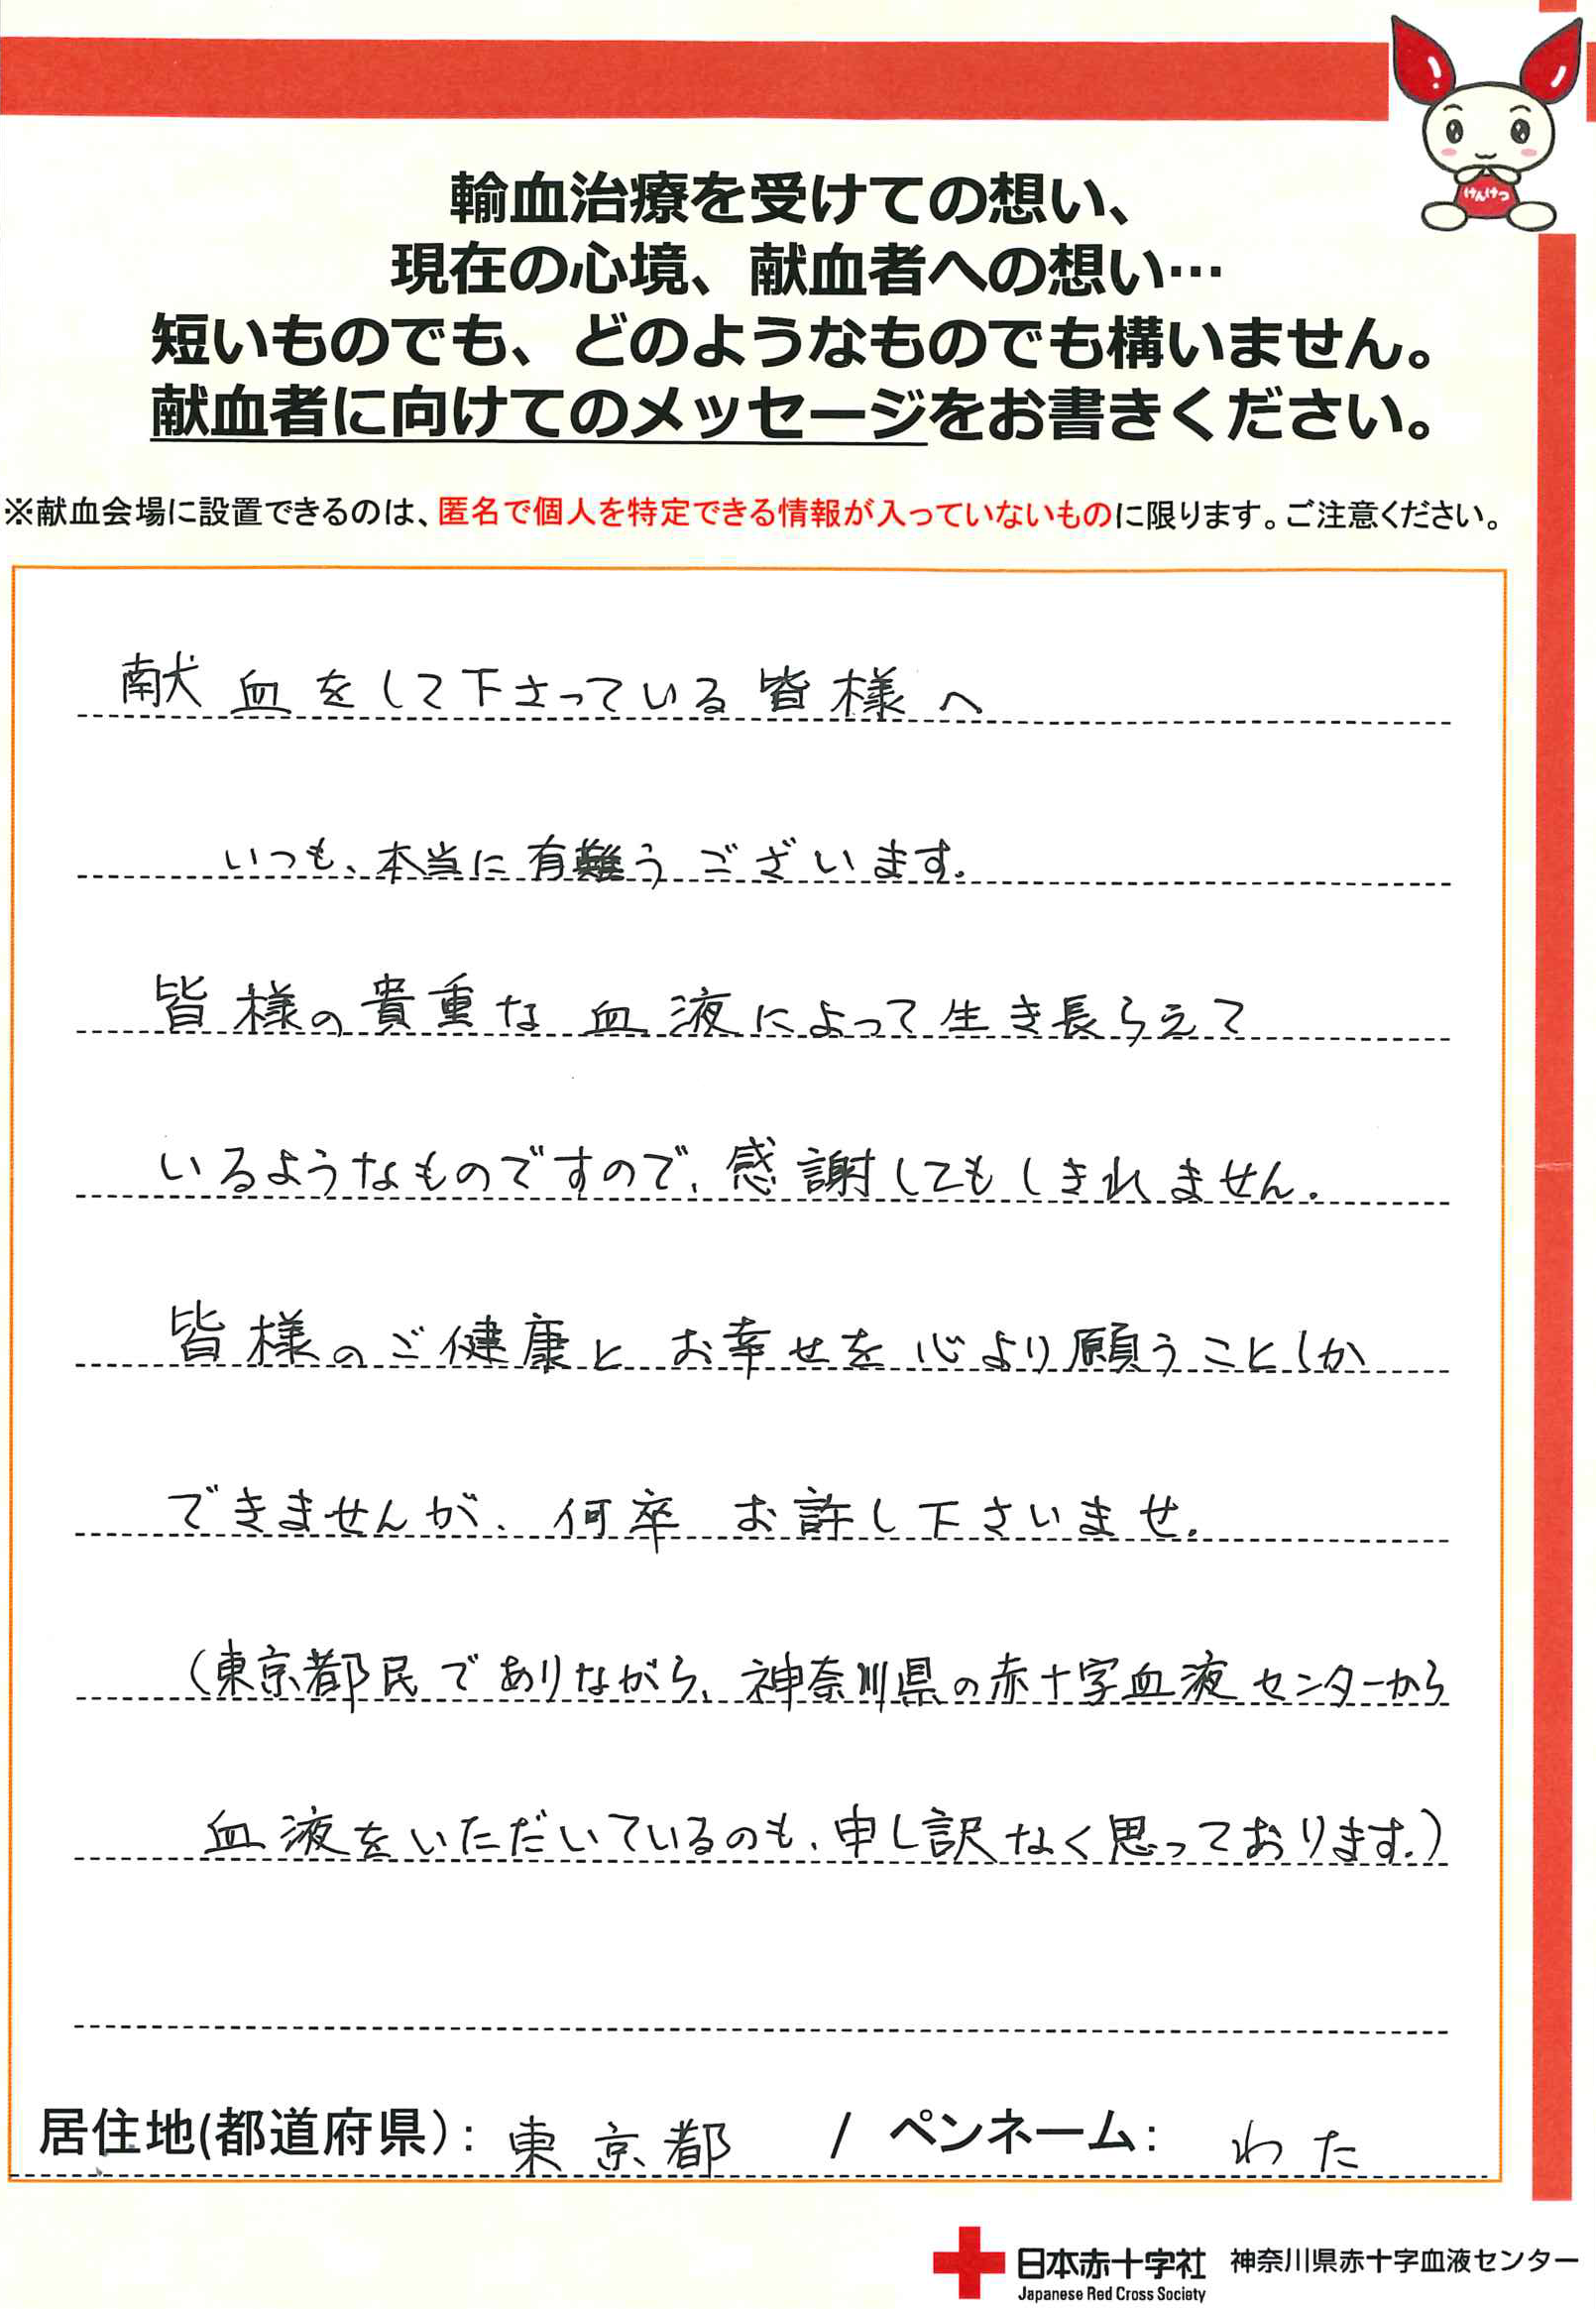 けんけつ
輸血治療を受けての想い、
現在の心境、献血者への想い…
短いものでも、どのようなものでも構いません。
献血者に向けてのメッセージをお書きください。
※献血会場に設置できるのは、匿名で個人を特定できる情報が入っていないものに限ります。ご注意ください。
献血をして下さっている皆様へ
いつも、本当に有難うございます。
皆様の貴重な血液によって生き長らえて
いるようなものですので、感謝してもしきれません。
皆様のご健康とお幸せを心より願うことしか
できませんが、何卒お許し下さいませ。
(東京都民でありながら、神奈川県の赤十字血液センターから
血液をいただいているのも、申し訳なく思っております。)
居住地(都道府県):東京都 / ペンネーム: わた
日本赤十字社 神奈川県赤十字血液センター
Japanese Red Cross Society